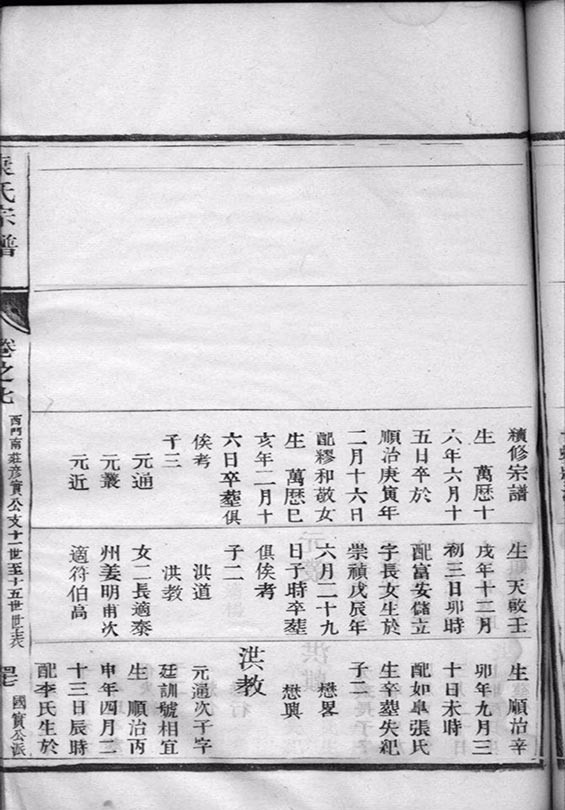 續修宗譜
生 萬歷十
六年六月十
五日卒於
順治庚寅年
二月十六日
配繆和敬女
生 萬歷巳
亥年二月十
六日卒塟俱
俟考
子三
元通
元叢
元近
生 天啟壬
戌年十二月
初三日卯時
配富安儲立
字長女生於
崇禎戊辰年
六月二十九
日子時卒塟
俱俟考
子二
洪道
洪教
女二長適泰
州姜明甫次
適符伯高
生 順治辛
卯年九月三
十日未時
配如臯張氏
生卒塟失紀
子二
懋畧
懋興
洪教
元通次子字
廷訓號相宜
生 順治丙
申年四月二
十三日辰時
配李氏生於
氏宗譜
卷之七
西門南莊彦實公支十一世至十五世世表
國實公派